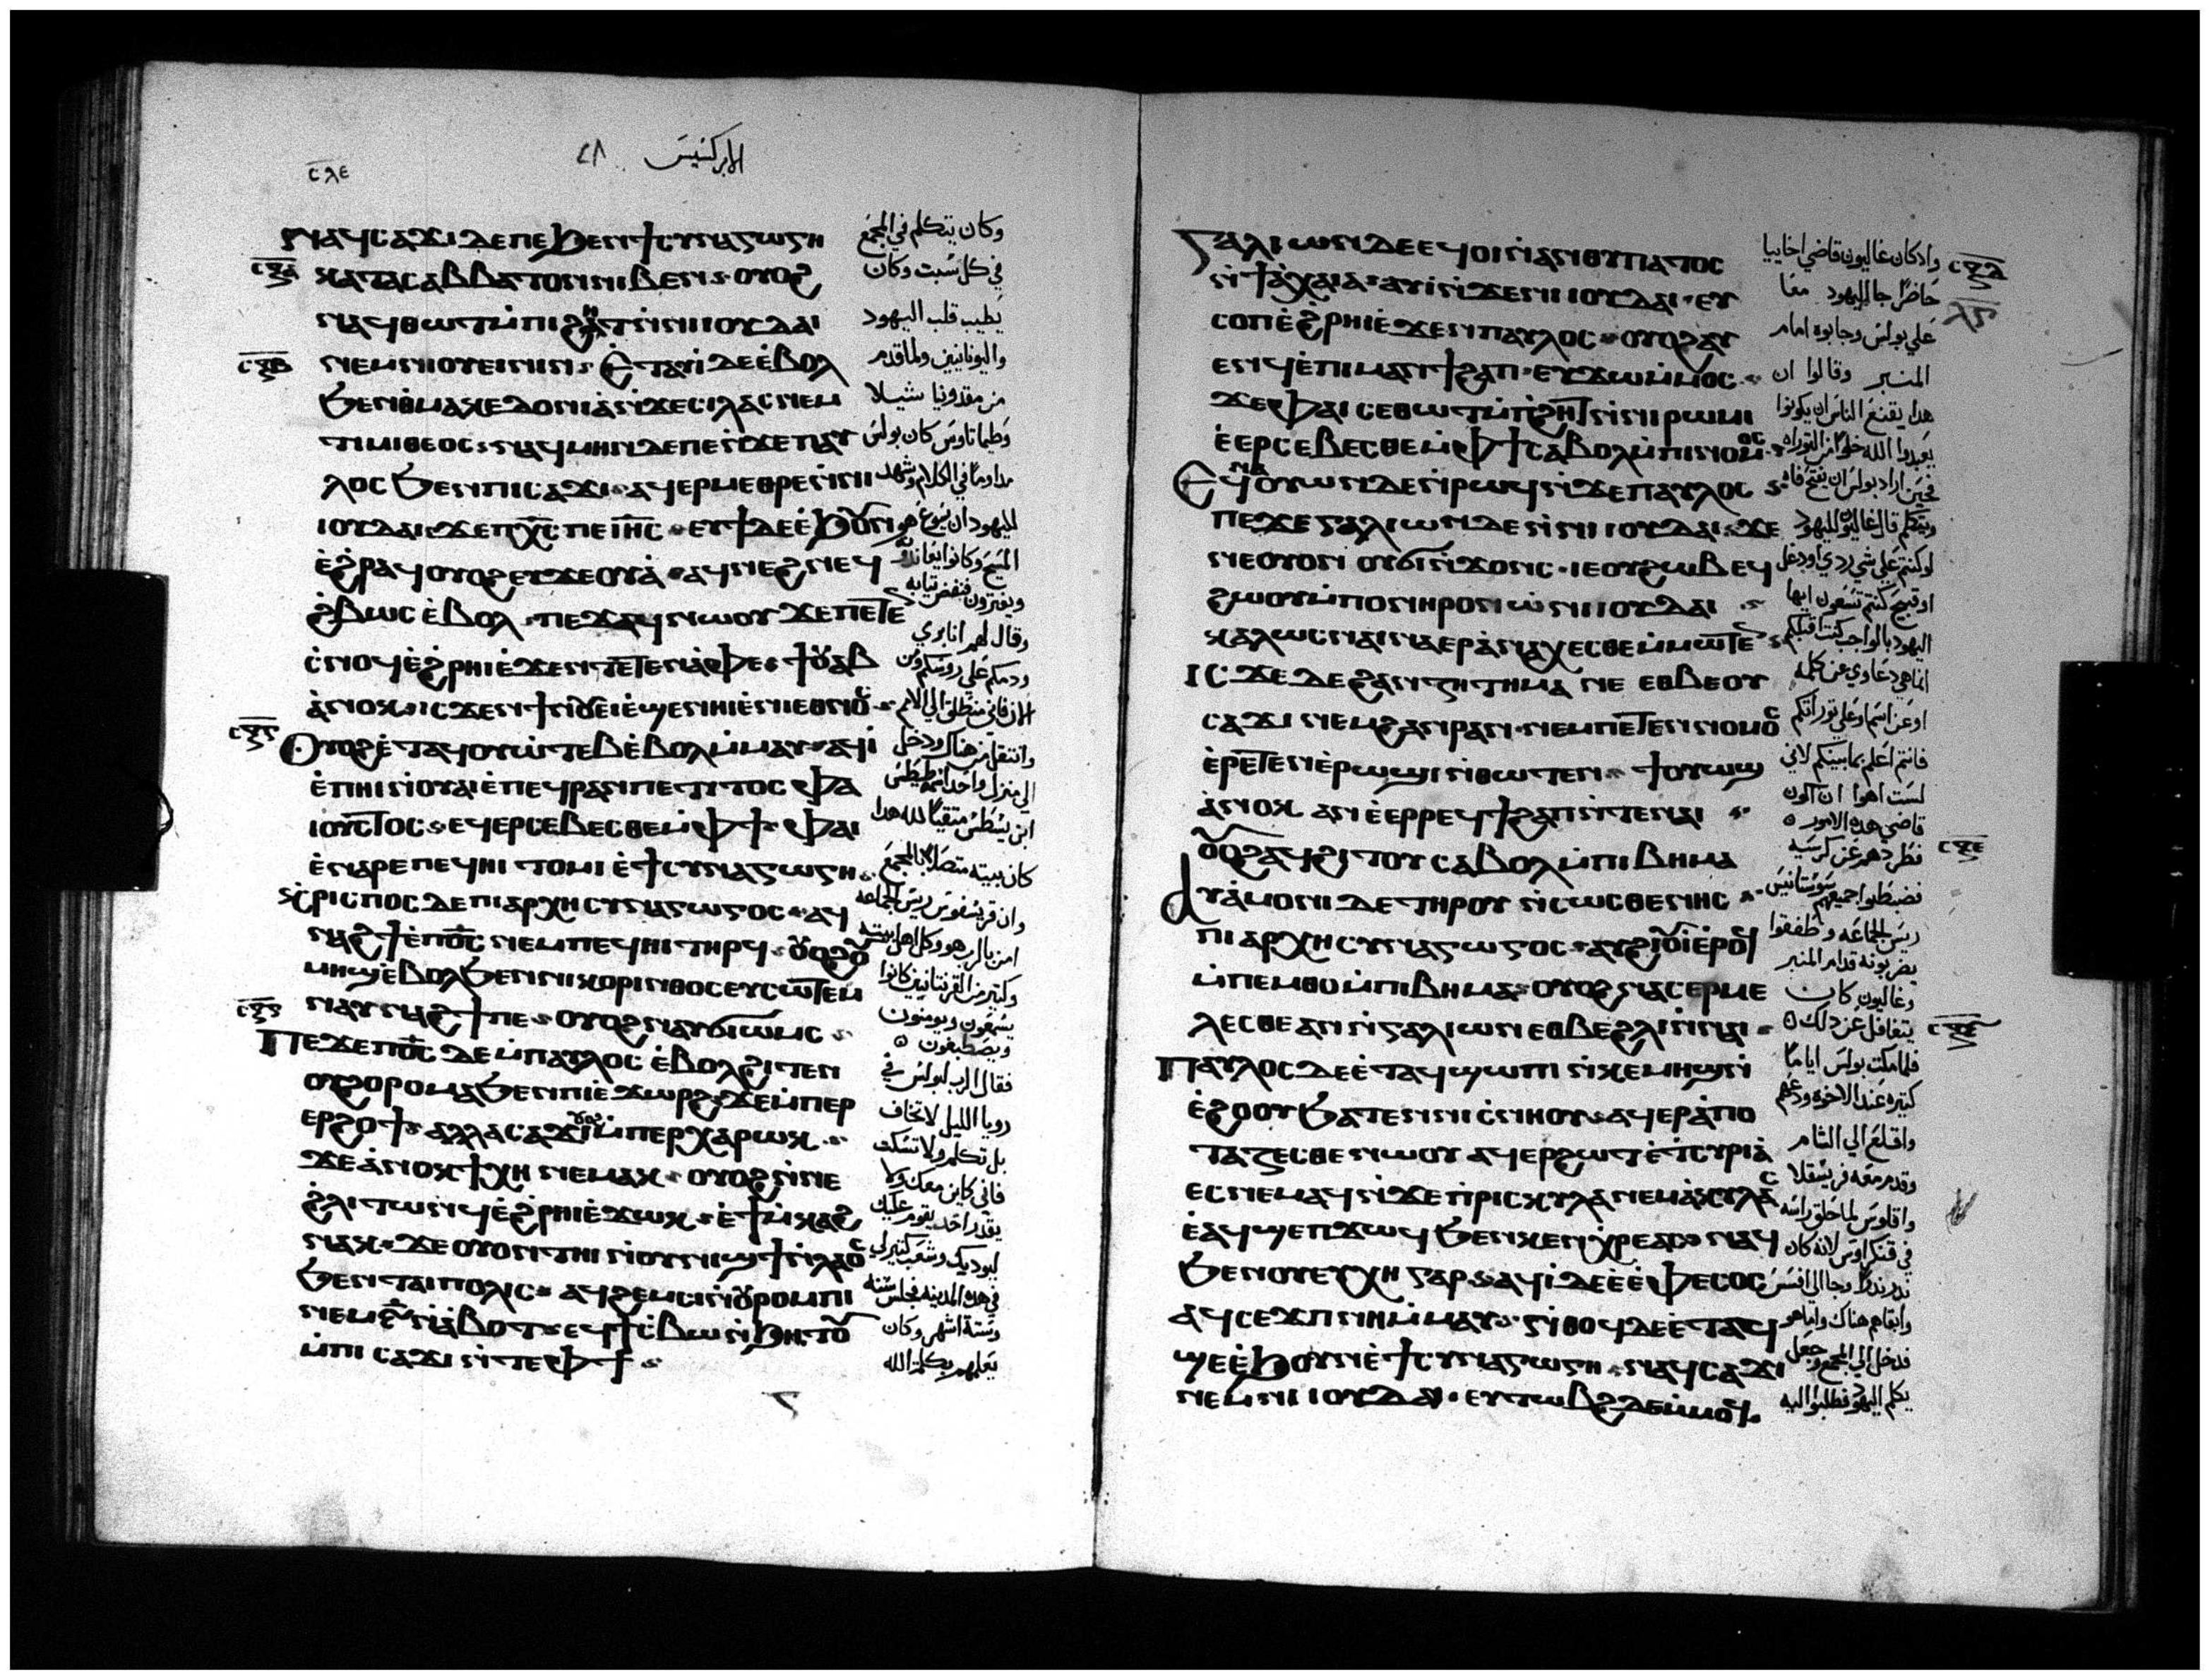 ⲥⲗⲉ
الابركسيس
ⲛⲁϥⲥⲁϫⲓ ⲇⲉ ⲡⲉ ϧⲉⲛ ϯⲥⲩⲛⲁⲅⲱⲅⲏ
ⲕⲁⲧⲁ ⲥⲁⲃⲃⲁⲧⲟⲛ ⲛⲓⲃⲉⲛ ⲟⲩⲟϩ
ⲛⲁϥⲑⲱⲧ ⲙ̀ⲡⲓϩⲏⲧ ⲛ̀ⲛⲓⲓⲟⲩⲇⲁⲓ
ⲛⲉⲙ ⲛⲓⲟⲩⲉⲓⲛⲓⲛ ⲉⲧⲁⲩⲓ̀ ⲇⲉ ⲉ̀ⲃⲟⲗ
ϧⲉⲛ ⲑⲙⲁⲕⲉⲇⲟⲛⲓⲁ̀ ⲛ̀ϫⲉ ⲥⲓⲗⲁⲥ ⲛⲉⲙ
ⲧⲓⲙⲟⲑⲉⲟⲥ ⲛⲁϥⲙⲏⲛ ⲇⲉ ⲡⲉ ⲛ̀ϫⲉ ⲡⲁⲩ
ⲗⲟⲥ ϧⲉⲛ ⲡⲓⲥⲁϫⲓ ⲁϥⲉⲣⲙⲉⲑⲣⲉ ⲛ̀ⲛⲓ
ⲓⲟⲩⲇⲁⲓ ϫⲉ ⲡⲭ̅ⲥ̅ ⲡⲉ ⲓⲏ̅ⲥ̅ ⲉⲩϯ ⲇⲉ ⲉ̀ϧⲟⲩⲛ
ⲉ̀ϩⲣⲁϥ ⲟⲩⲟϩ ⲉⲩϫⲉⲟⲩⲁ̀ ⲁϥⲛⲉϩ ⲛⲉϥ
ϩⲃⲱⲥ ⲉ̀ⲃⲟⲗ ⲡⲉϫⲁϥ ⲛⲱⲟⲩ ϫⲉ ⲡⲉⲧⲉ
ⲥ̀ⲛⲟϥ ⲉ̀ϩⲣⲏⲓ ⲉ̀ϫⲉⲛ ⲧⲉⲧⲉⲛⲁ̀ⲫⲉ ϯⲟⲩⲁⲃ
ⲁ̀ⲛⲟⲕ ⲓⲥϫⲉⲛ ϯⲛⲟⲩ ⲉⲓⲉ̀ϣⲉⲛⲏⲓ ⲉ̀ⲛⲓⲉⲑⲛⲟⲥ
ⲟⲩⲟϩ ⲉ̀ⲧⲁϥⲟⲩⲱ̀ⲧⲉⲃ ⲉ̀ⲃⲟⲗ ⲙ̀ⲙⲁⲩ ⲁϥⲓ̀
ⲉ̀ⲡⲏⲓ ⲛ̀ⲟⲩⲁⲓ ⲉ̀ⲡⲉϥⲣⲁⲛ ⲡⲉ ⲧⲓⲧⲟⲥ ⲫⲁ
ⲓⲟⲩⲥⲧⲟⲥ ⲉϥⲉⲣⲥⲉⲃⲉⲥⲑⲉ ⲙ̀ⲫϯ ⲫⲁⲓ
ⲉ̀ⲛⲁⲣⲉ ⲡⲉϥⲏⲓ ⲧⲟⲙⲓ ⲉ̀ϯⲥⲩⲛⲁⲅⲱⲅⲏ
ⲕ̀ⲣⲓⲥⲡⲟⲥ ⲇⲉ ⲡⲓⲁⲣⲭⲏⲥⲩⲛⲁⲅⲱⲅⲟⲥ ⲁϥ
ⲛⲁϩϯ ⲉ̀ⲡⲟ̅ⲥ̅ ⲛⲉⲙ ⲡⲉϥⲏⲓ ⲧⲏⲣϥ ⲟⲩⲟϩ ⲟⲩ
ⲙⲏϣ ⲉ̀ⲃⲟⲗ ϧⲉⲛ ⲛⲓⲕⲟⲣⲓⲛⲑⲟⲥ ⲉⲩⲥⲱⲧⲉⲙ
ⲛⲁⲩⲛⲁϩϯ ⲡⲉ ⲟⲩⲟϩ ⲛⲁⲩϭⲓⲱⲙⲥ
ⲡⲉϫⲉ ⲡⲟ̅ⲥ̅ ⲇⲉ ⲙ̀ⲡⲁⲩⲗⲟⲥ ⲉ̀ⲃⲟⲗ ϩⲓⲧⲉⲛ
ⲟⲩϩⲟⲣⲟⲙⲁ ϧⲉⲛ ⲡⲓⲉ̀ϫⲱⲣϩ ϫⲉ ⲙ̀ⲡⲉⲣ
ⲉⲣϩⲟϯ ⲁⲗⲗⲁ ⲥⲁϫⲓ ⲟⲩⲟϩ ⲙ̀ⲡⲉⲣⲭⲁⲣⲱⲕ
ϫⲉ ⲁ̀ⲛⲟⲕ ϯⲭⲏ ⲛⲉⲙⲁⲕ ⲟⲩⲟϩ ⲛ̀ⲛⲉ
ϩ̀ⲗⲓ ⲧⲱⲛϥ ⲉ̀ϩⲣⲏⲓ ⲉ̀ϫⲱⲕ ⲉ̀ϯⲙ̀ⲕⲁϩ
ⲛⲁⲕ ϫⲉ ⲟⲩⲟⲛ ⲧⲏⲓ ⲛ̀ⲟⲩⲛⲓϣϯ ⲛ̀ⲗⲁⲟⲥ
ϧⲉⲛ ⲧⲁⲓⲡⲟⲗⲓⲥ ⲁϥϩⲉⲙⲥⲓ ⲛ̀ⲟⲩⲣⲟⲙⲡⲓ
ⲛⲉⲙ ⲋ̅ ⲛ̀ⲁ̀ⲃⲟⲧ ⲉϥϯⲥ̀ⲃⲱ ⲛ̀ϧⲏⲧⲟⲩ
ⲙ̀ⲡⲓⲥⲁϫⲓ ⲛ̀ⲧⲉ ⲫϯ
وكان يتكلم في المجمع
في كل سبت وكان
يطيب قلب اليهود
واليونانيين ولما قدم
من مقدونيا شيلا
وطيماتاوس كان بولس
مداوما في الكلام وشهد
لليهود ان يسوع هو
المسيح وكانوا يعاندونه
ويفترون فنفض ثيابه
وقال لهم انا بري
ودمكم على روسكم ومن
الان فاني منطلق الى الامم
وانتقل من هناك ودخل
الى منزل واحد اسمه طيطس
ابن يسطس متقيا لله هدا
كان بيته متصلا بالمجمع
وان قريسفوس ريس الجماعه
امن بالرب هو وكل اهل بيته
وكتير من القرنتانيين كانوا
يسمعون ويومنون
ويصطبغون
فقال الرب لبولس في
رويا الليل لا تخاف
بل تكلم ولا تسكت
فاني كاين معك ولا
يقدر احد يقوم عليك
ليوديك وشعب كتير لي
في هده المدينه فجلس سنه
وستة اشهر وكان
يعلمهم بكلمة الله
ⲅⲁⲗⲓⲱⲛ ⲇⲉ ⲉϥⲟⲓ ⲛ̀ⲁⲛⲑⲩⲡⲁⲧⲟⲥ
ⲛ̀ϯⲁ̀ⲭⲁⲓⲁ ⲁⲩⲓ̀ ⲛ̀ϫⲉ ⲛⲓⲓⲟⲩⲇⲁⲓ ⲉⲩ
ⲥⲟⲡ ⲉ̀ϩⲣⲏⲓ ⲉ̀ϫⲉⲛ ⲡⲁⲩⲗⲟⲥ ⲟⲩⲟϩ ⲁⲩ
ⲉⲛϥ ⲉ̀ⲡⲓⲙⲁⲛϯϩⲁⲡ ⲉⲩϫⲱ ⲙ̀ⲙⲟⲥ
ϫⲉ ⲫⲁⲓ ⲥⲉⲑⲱⲧ ⲙ̀ⲡ̀ϩⲏⲧ ⲛ̀ⲛⲓⲣⲱⲙⲓ
ⲉ̀ⲉⲣⲥⲉⲃⲉⲥⲑⲉ ⲙ̀ⲫϯ ⲥⲁⲃⲟⲗ ⲙ̀ⲡⲓⲛⲟⲙⲟⲥ
ⲉϥⲛⲁⲟⲩⲱⲛ ⲇⲉ ⲛ̀ⲣⲱϥ ⲛ̀ϫⲉ ⲡⲁⲩⲗⲟⲥ
ⲡⲉϫⲉ ⲅⲁⲗⲓⲱⲛ ⲇⲉ ⲛ̀ⲛⲓⲓⲟⲩⲇⲁⲓ ϫⲉ
ⲛⲉ ⲟⲩⲟⲛ ⲟⲩϭⲓⲛ̀ϫⲟⲛⲥ ⲓⲉ ⲟⲩϩⲱⲃ ⲉϥ
ϩⲱⲟⲩ ⲙ̀ⲡⲟⲛⲏⲣⲟⲛ ⲱ̀ ⲛⲓⲓⲟⲩⲇⲁⲓ
ⲕⲁⲗⲱⲥ ⲛⲁⲓⲛⲁⲉⲣⲁ̀ⲛⲁⲭⲉⲥⲑⲉ ⲙ̀ⲙⲱⲧⲉⲛ
ⲓⲥϫⲉ ⲇⲉ ϩⲁⲛⲍⲏⲧⲏⲙⲁ ⲛⲉ ⲉⲑⲃⲉ ⲟⲩ
ⲥⲁϫⲓ ⲛⲉⲙ ϩⲁⲛⲣⲁⲛ ⲛⲉⲙ ⲡⲉⲧⲉⲛⲛⲟⲙⲟⲥ
ⲉ̀ⲣⲉⲧⲉⲛⲉ̀ⲣⲱϣⲓ ⲛ̀ⲑⲱⲧⲉⲛ ϯⲟⲩⲱϣ
ⲁ̀ⲛⲟⲕ ⲁⲛ ⲉ̀ⲉⲣⲣⲉϥϯϩⲁⲡ ⲛ̀ⲧⲉ ⲛⲁⲓ
ⲟⲩⲟϩ ⲁϥϩⲓⲧⲟⲩ ⲥⲁⲃⲟⲗ ⲙ̀ⲡⲓⲃⲏⲙⲁ
ⲁⲩⲁ̀ⲙⲟⲛⲓ ⲇⲉ ⲧⲏⲣⲟⲩ ⲛ̀ⲥⲱⲥⲑⲉⲛⲏⲥ
ⲡⲓⲁⲣⲭⲏⲥⲩⲛⲁⲅⲱⲅⲟⲥ ⲁⲩϩⲓⲟⲩⲓ̀ ⲉ̀ⲣⲟϥ
ⲙ̀ⲡⲉⲙⲑⲟ ⲙ̀ⲡⲓⲃⲏⲙⲁ ⲟⲩⲟϩ ⲛⲁⲥⲉⲣⲙⲉ
ⲗⲉⲥⲑⲉ ⲁⲛ ⲛ̀ⲅⲁⲗⲓⲱⲛ ⲉⲑⲃⲉ ϩⲗⲓ ⲛ̀ⲛⲁⲓ
ⲡⲁⲩⲗⲟⲥ ⲇⲉ ⲉ̀ⲧⲁϥϣⲱⲡⲓ ⲛ̀ⲕⲉⲙⲏϣ ⲛ̀
ⲉ̀ϩⲟⲟⲩ ϧⲁⲧⲉⲛ ⲛⲓⲥ̀ⲛⲏⲟⲩ ⲁϥⲉⲣⲁ̀ⲡⲟ
ⲧⲁⲍⲉⲥⲑⲉ ⲛⲱⲟⲩ ⲁϥⲉⲣϩⲱⲧ ⲉ̀ϯⲥⲩⲣⲓⲁ̀
ⲉⲥⲛⲉⲙⲁϥ ⲛ̀ϫⲉ ⲡ̀ⲣⲓⲥⲕⲩⲗⲁ ⲛⲉⲙ ⲁ̀ⲕⲩⲗⲁⲥ
ⲉ̀ⲁϥϣⲉⲡ ϫⲱϥ ϧⲉⲛ ⲕⲉⲛⲭ̀ⲣⲉⲁⲥ ⲛⲁϥ
ϧⲉⲛ ⲟⲩⲉⲩⲭⲏ ⲅⲁⲣ ⲁϥⲓ̀ ⲇⲉ ⲉ̀ⲉ̀ⲫⲉⲥⲟⲥ
ⲁϥⲥⲉϫⲡ ⲛⲏ ⲙ̀ⲙⲁⲩ ⲛ̀ⲑⲟϥ ⲇⲉ ⲉⲧⲁϥ
ϣⲉ ⲉ̀ϧⲟⲩⲛ ⲉ̀ϯⲥⲩⲛⲁⲅⲱⲅⲏ ⲛⲁϥⲥⲁϫⲓ
ⲛⲉⲙ ⲛⲓⲓⲟⲩⲇⲁⲓ ⲉⲩⲧⲱⲃϩ ⲇⲉ ⲙ̀ⲙⲟϥ
واد كان غاليون قاضي اخاييا
حاضرا جا اليهود معا
على بولس وجابوه امام
المنبر وقالوا ان
هدا يقنع الناس ان يكونوا
يعبدوا الله خلوا من التوراه
فحين اراد بولس ان يفتح فاه
ويتكلم قال غاليون لليهود
لو كنتم على شي ردي او دغل
او قبيح كنتم تسعون ايها
اليهود بالواجب كنت اقبلكم
انما هي دعاوي عن كلمه
او عن اسم او على توراتكم
فانتم اعلم بما بينكم لاني
لست اهوا ان اكون
قاضي هده الامور
فطردهم عن كرسيه
فضبطوا جميعهم سوستانيس
ريس الجماعه وطفقوا
يضربونه قدام المنبر
وغاليون كان
يتغافل عن دلك
فلما مكت بولس اياما
كتيره عند الاخوه ودعهم
واقلع الى الشام
وقدم معه فريسقلا
واقلوس لما حلق راسه
في قنكراوس لانه كان
ندر ندرا وجا الى افسس
وابقاهم هناك واما هو
فدخل الى المجمع وجعل
يكلم اليهود فطلبوا اليه